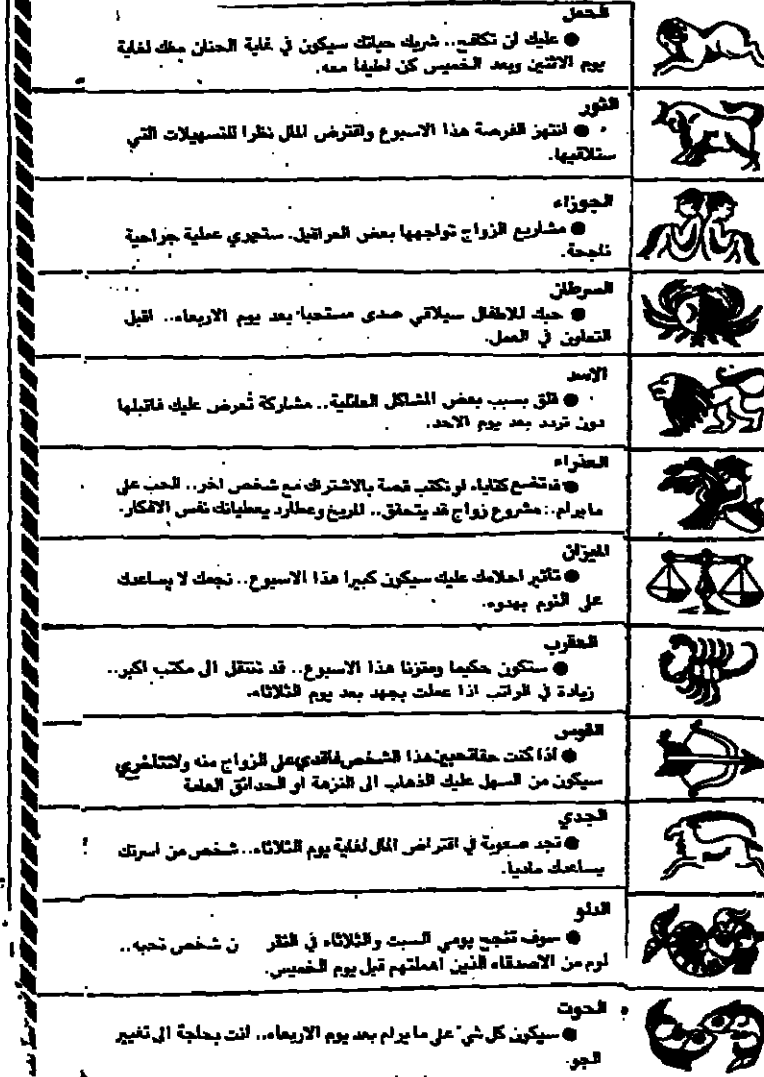 الحمل
● عليك ان تكافح.. شريك حياتك سيكون في غاية الحنان معك لغاية
يوم الاثنين وبعد الخميس كن لطيفا معه.
الثور
● انتهز الفرصة هذا الاسبوع واقترض المال نظرا للتسهيلات التي
ستلاقيها.
الجوزاء
● مشاريع الزواج تواجهها بعض العراقيل. ستجري عملية جراحية
ناجحة.
السرطان
● حبك للاطفال سيلاقي صدى مستحبا بعد يوم الاربعاء.. اقبل
التعاون في العمل.
الاسد
● قلق بسبب بعض المشاكل العائلية.. مشاركة تُعرض عليك فاقبلها
دون تردد بعد يوم الاحد.
العذراء
● قد تضع كتابا، او تكتب قصة بالاشتراك مع شخص اخر.. الحب على
ما يرام.. مشروع زواج قد يتحقق.. المريخ وعطارد يعطيانك نفس الافكار.
الميزان
● تأثير احلامك عليك سيكون كبيرا هذا الاسبوع.. نجمك لا يساعدك
على النوم بهدوء.
العقرب
● ستكون حكيما ومتزنا هذا الاسبوع.. قد تنتقل الى مكتب اكبر..
زيادة في الراتب اذا عملت بجهد بعد يوم الثلاثاء.
القوس
● اذا كنت حقا تحبين هذا الشخص فاقدمي على الزواج منه ولا تتأخري
سيكون من السهل عليك الذهاب الى النزهة او الحدائق العامة
الجدي
● تجد صعوبة في اقتراض المال لغاية يوم الثلاثاء.. شخص من اسرتك
يساعدك ماديا.
الدلو
● سوف تنجح يومي السبت والثلاثاء في التقر ن شخص تحبه..
لوم من الاصدقاء الذين اهملتهم قبل يوم الخميس.
الحوت
● سيكون كل شيء على ما يرام بعد يوم الاربعاء.. انت بحاجة الى تغيير
الجو.